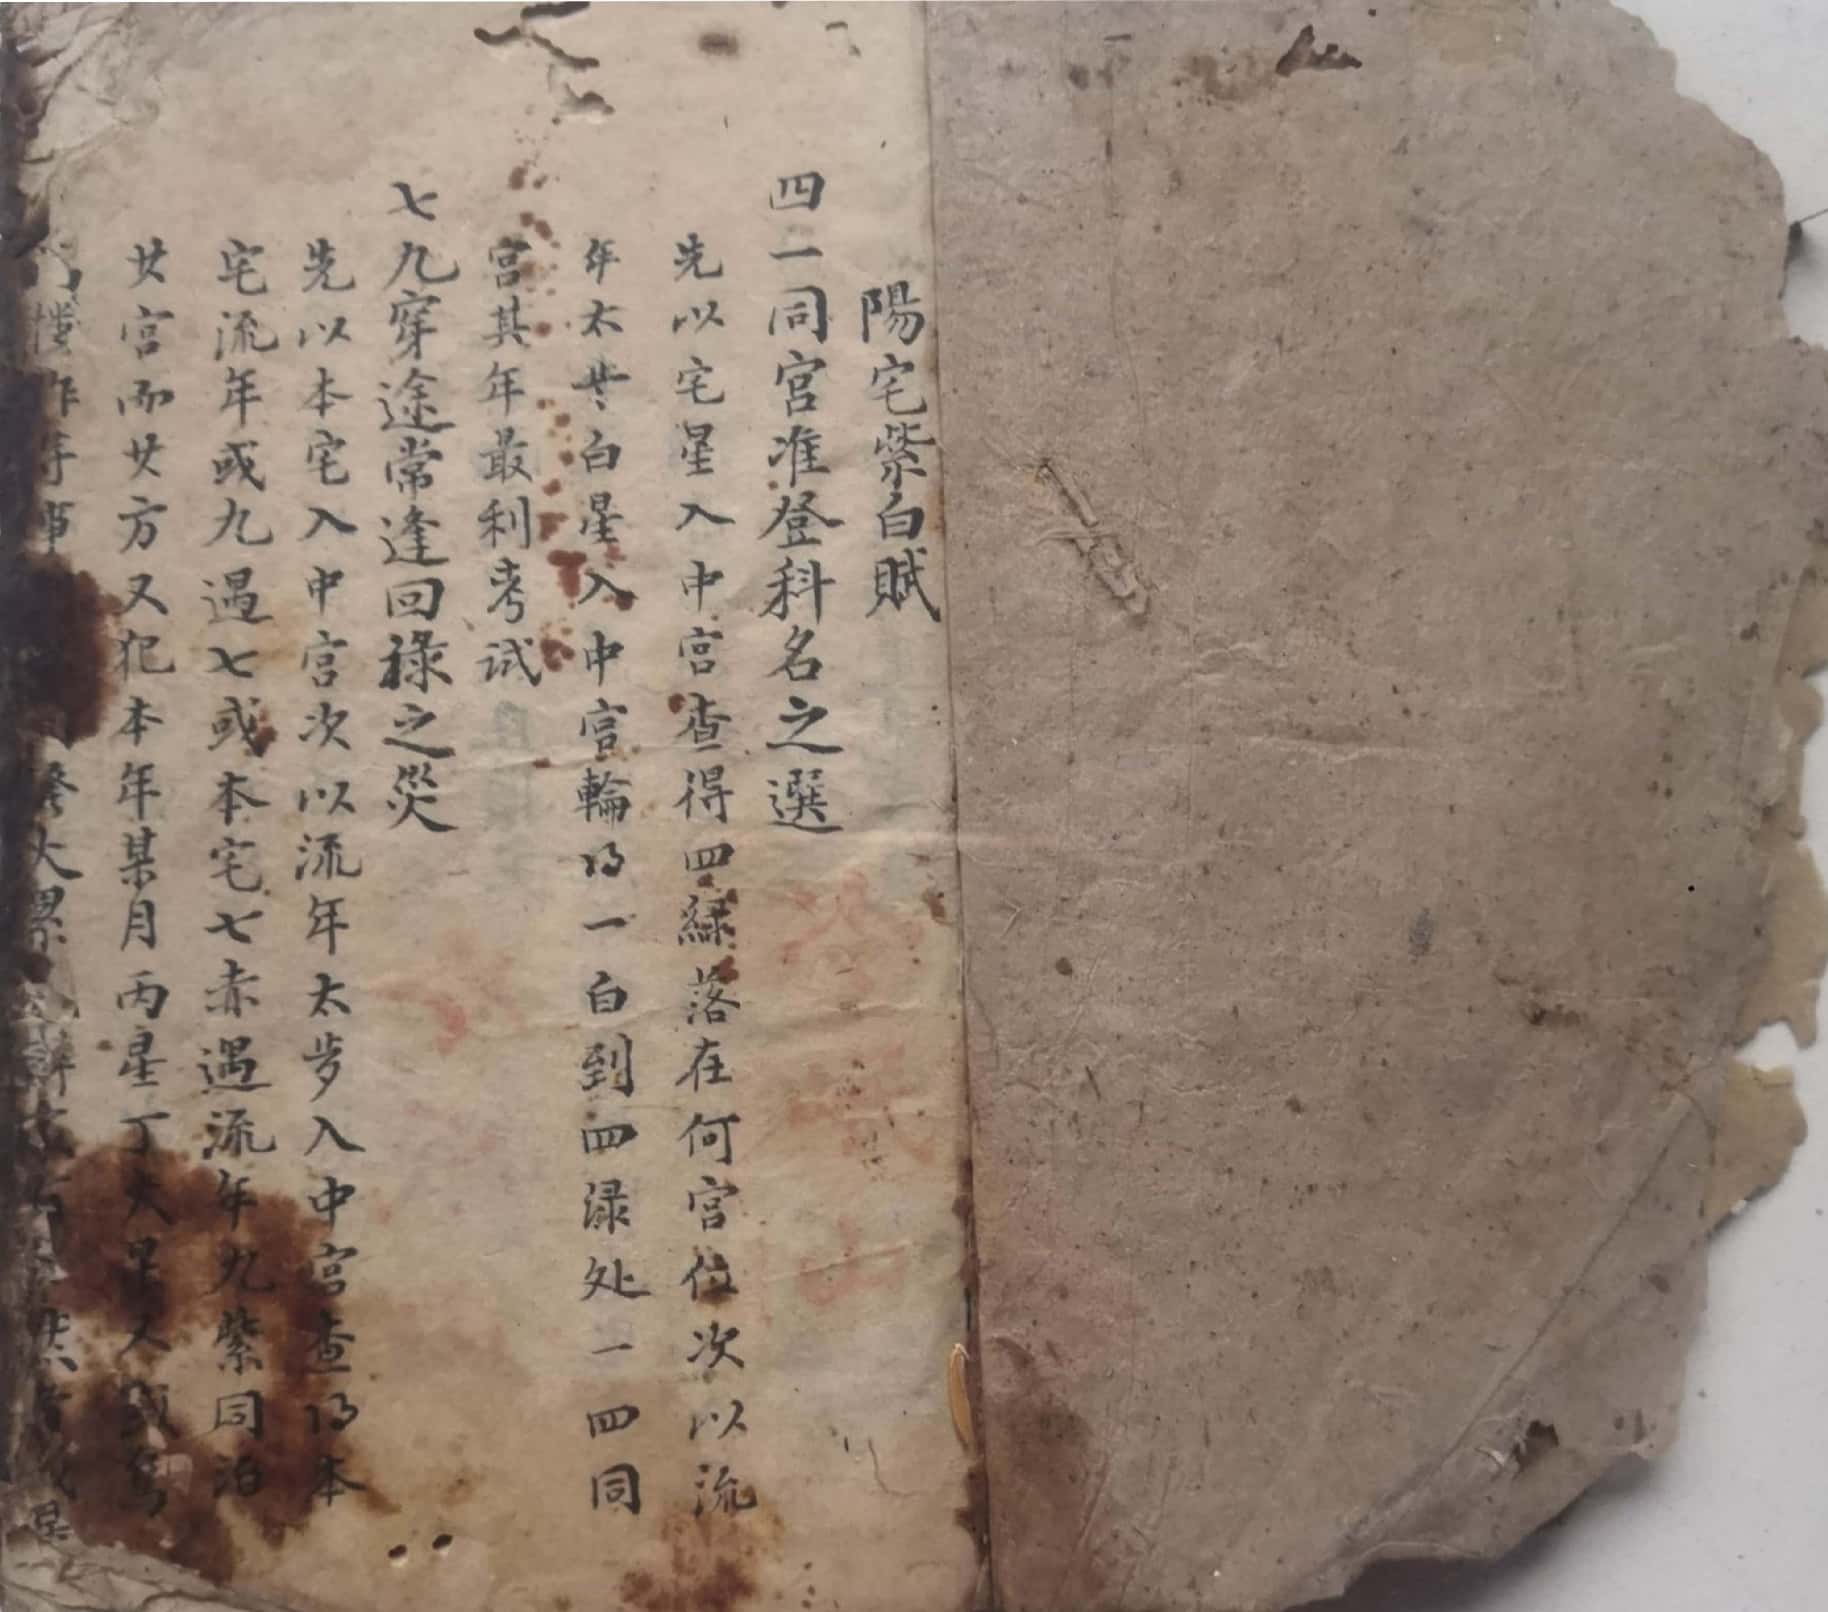 陽宅紫白賦
四一同宮准登科名之選
先以宅星入中宮查得四綠落在何宮位次以流
年太歩白星入中宮輪乃一白到四渌处一四同
宮其年最利考试
七九穿途常逢回祿之災
先以本宅入中宮次以流年太歩入中宮查乃本
宅流年或九遇七或本宅七赤遇流年九紫同泊
廿宮而廿方又犯本年某月丙星丁火星
大累